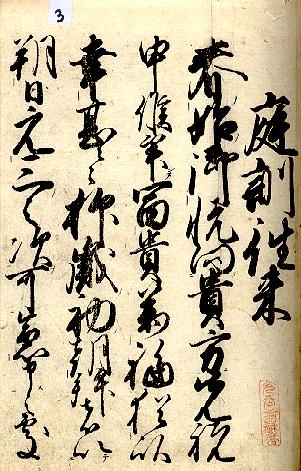 3
庭訓往来
春始御悦向貴方先祝
申候畢富貴万福猶以
幸甚々抑歳初朝拝者以
朔日元三之次可急申之処